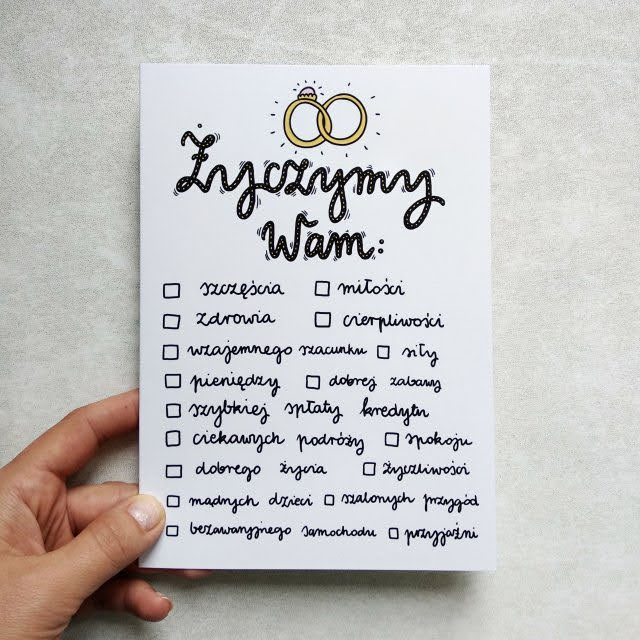 Życzymy
Wam:
szczęścia miłości
zdrowia cierpliwości
wzajemnego szacunku siły
pieniędzy dobrej zabawy
szybkiej spłaty kredytu
ciekawych podróży spokoju
dobrego życia życzliwości
mądrych dzieci szalonych przygód
bezawaryjnego samochodu przyjaźni